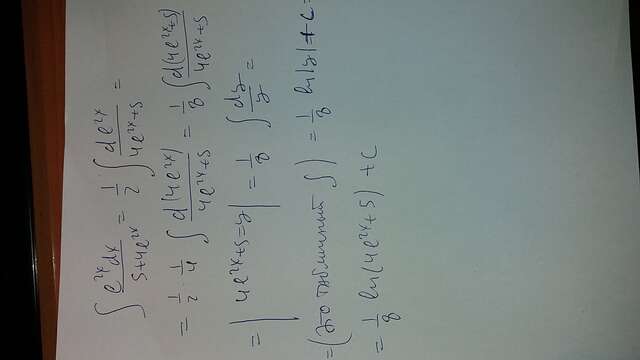 ∫ e^{2x}dx / 5+4e^{2x} = 1/2 ∫ de^{2x} / 4e^{2x}+5 =
= 1/2 · 1/4 ∫ d(4e^{2x}) / 4e^{2x}+5 = 1/8 ∫ d(4e^{2x}+5) / 4e^{2x}+5
= | 4e^{2x}+5=y | = 1/8 ∫ dy/y =
= (это табличный ∫) = 1/8 ln|y| + c =
= 1/8 ln(4e^{2x}+5) + c